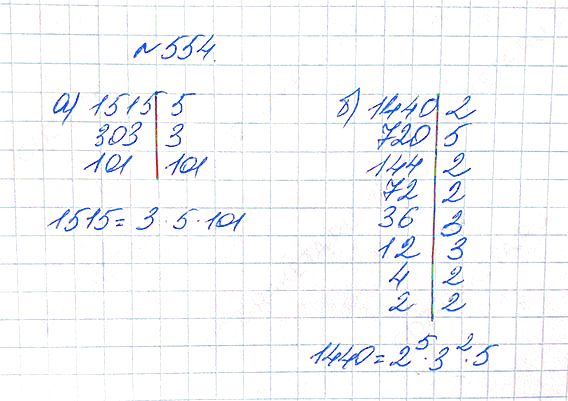 №554.
а) 1515 | 5
303 | 3
101 | 101
1515 = 3 · 5 · 101
б) 1440 | 2
720 | 5
144 | 2
72 | 2
36 | 3
12 | 3
4 | 2
2 | 2
1440 = 2⁵ · 3² · 5